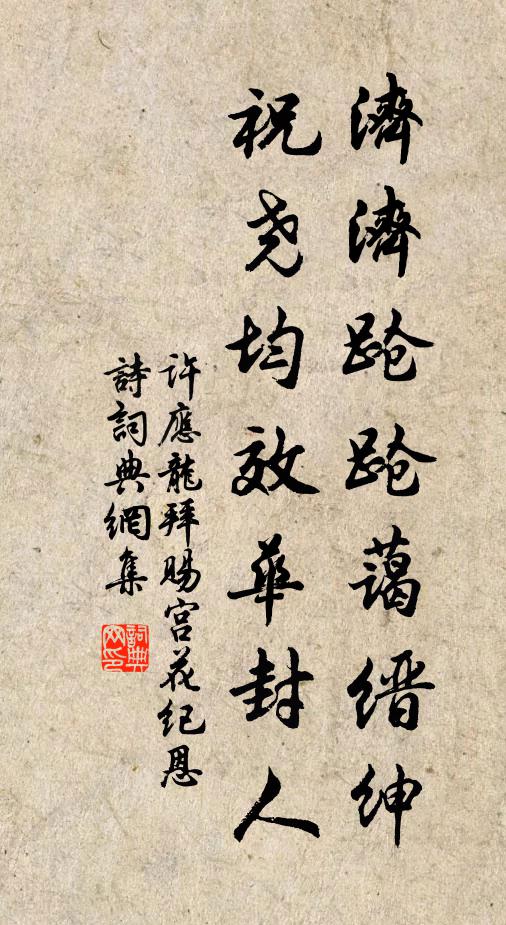 濟濟蹌蹌藹缙紳
祝尧均效華封人
許應龍拜賜宫花紀恩
詩詞典網集
詞典网印